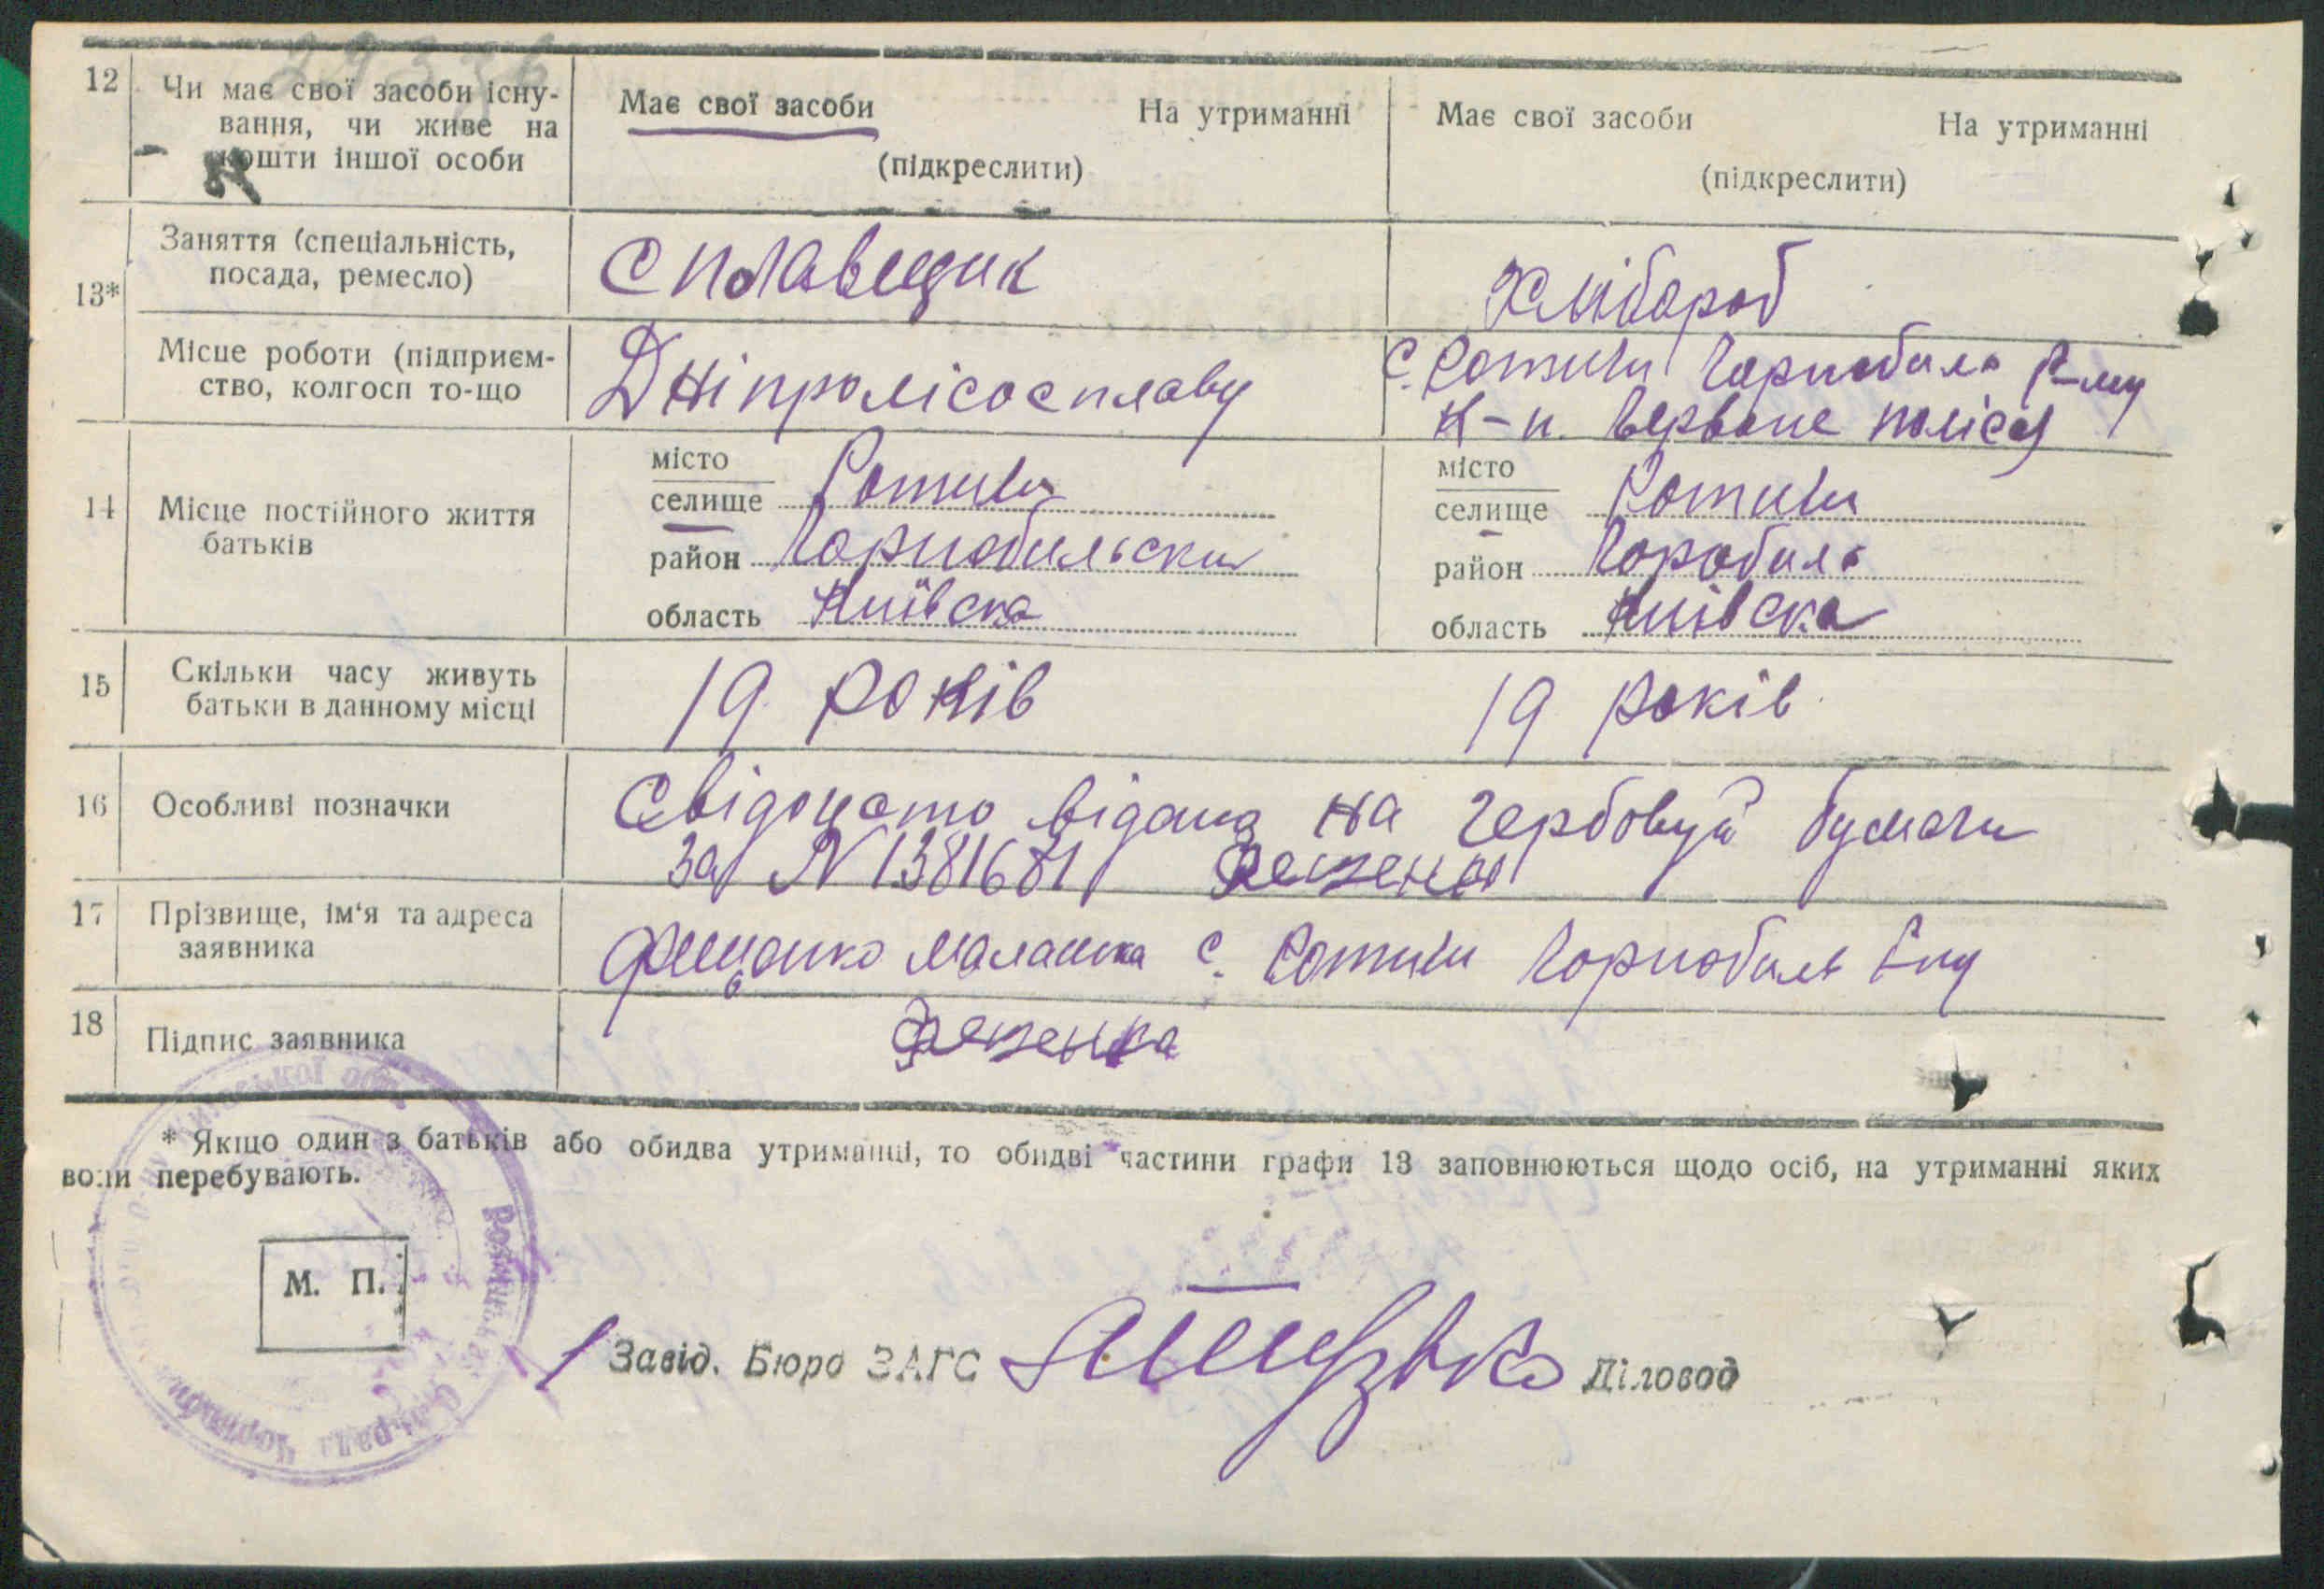 12 Чи має свої засоби існу-
вання, чи живе на
кошти іншої особи
Має свої засоби На утриманні
(підкреслити)
Має свої засоби На утриманні
(підкреслити)
13*
Заняття (спеціальність,
посада, ремесло)
Сплавщик
Хлібороб
Місце роботи (підприєм-
ство, колгосп то-що
Дніпролісосплаву
с. Ротичи Чорнобиль Р-ну
К-п. Червоне полісся
14 Місце постійного життя
батьків
місто
селище Ротичи
район Чорнобильски
область Київска
місто
селище Ротичи
район Чоробиль
область Київска
15 Скільки часу живуть
батьки в данному місці
19 років
19 років
16 Особливі позначки
Свідоцто відана на гербовуй бумаги
за N
17 Прізвище, ім'я та адреса
заявника
Малашка с. Ротичи Чорнобиль
18 Підпис заявника
* Якщо один з батьків або обидва утриманці, то обидві частини графи 13 заповнюються щодо осіб, на утриманні яких
вони перебувають.
М. П.
Завід. Бюро ЗАГС
Діловод